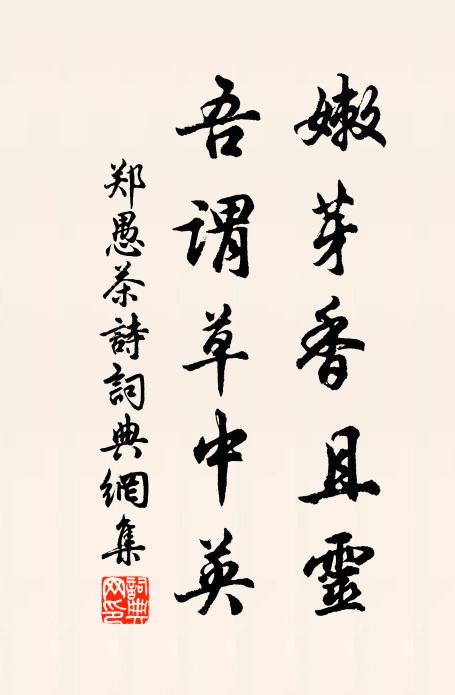 嫩芽香且靈
吾謂草中英
郑愚茶詩詞典網集
詞典网印